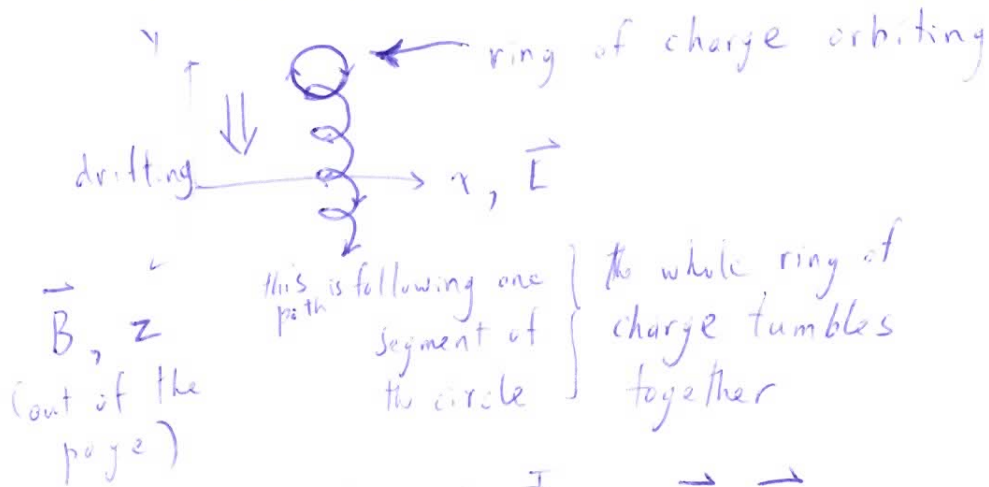 y
ring of charge orbiting
drifting
x, E
B, z
(out of the
page)
this is following one
path
segment of
the circle
the whole ring of
charge tumbles
together